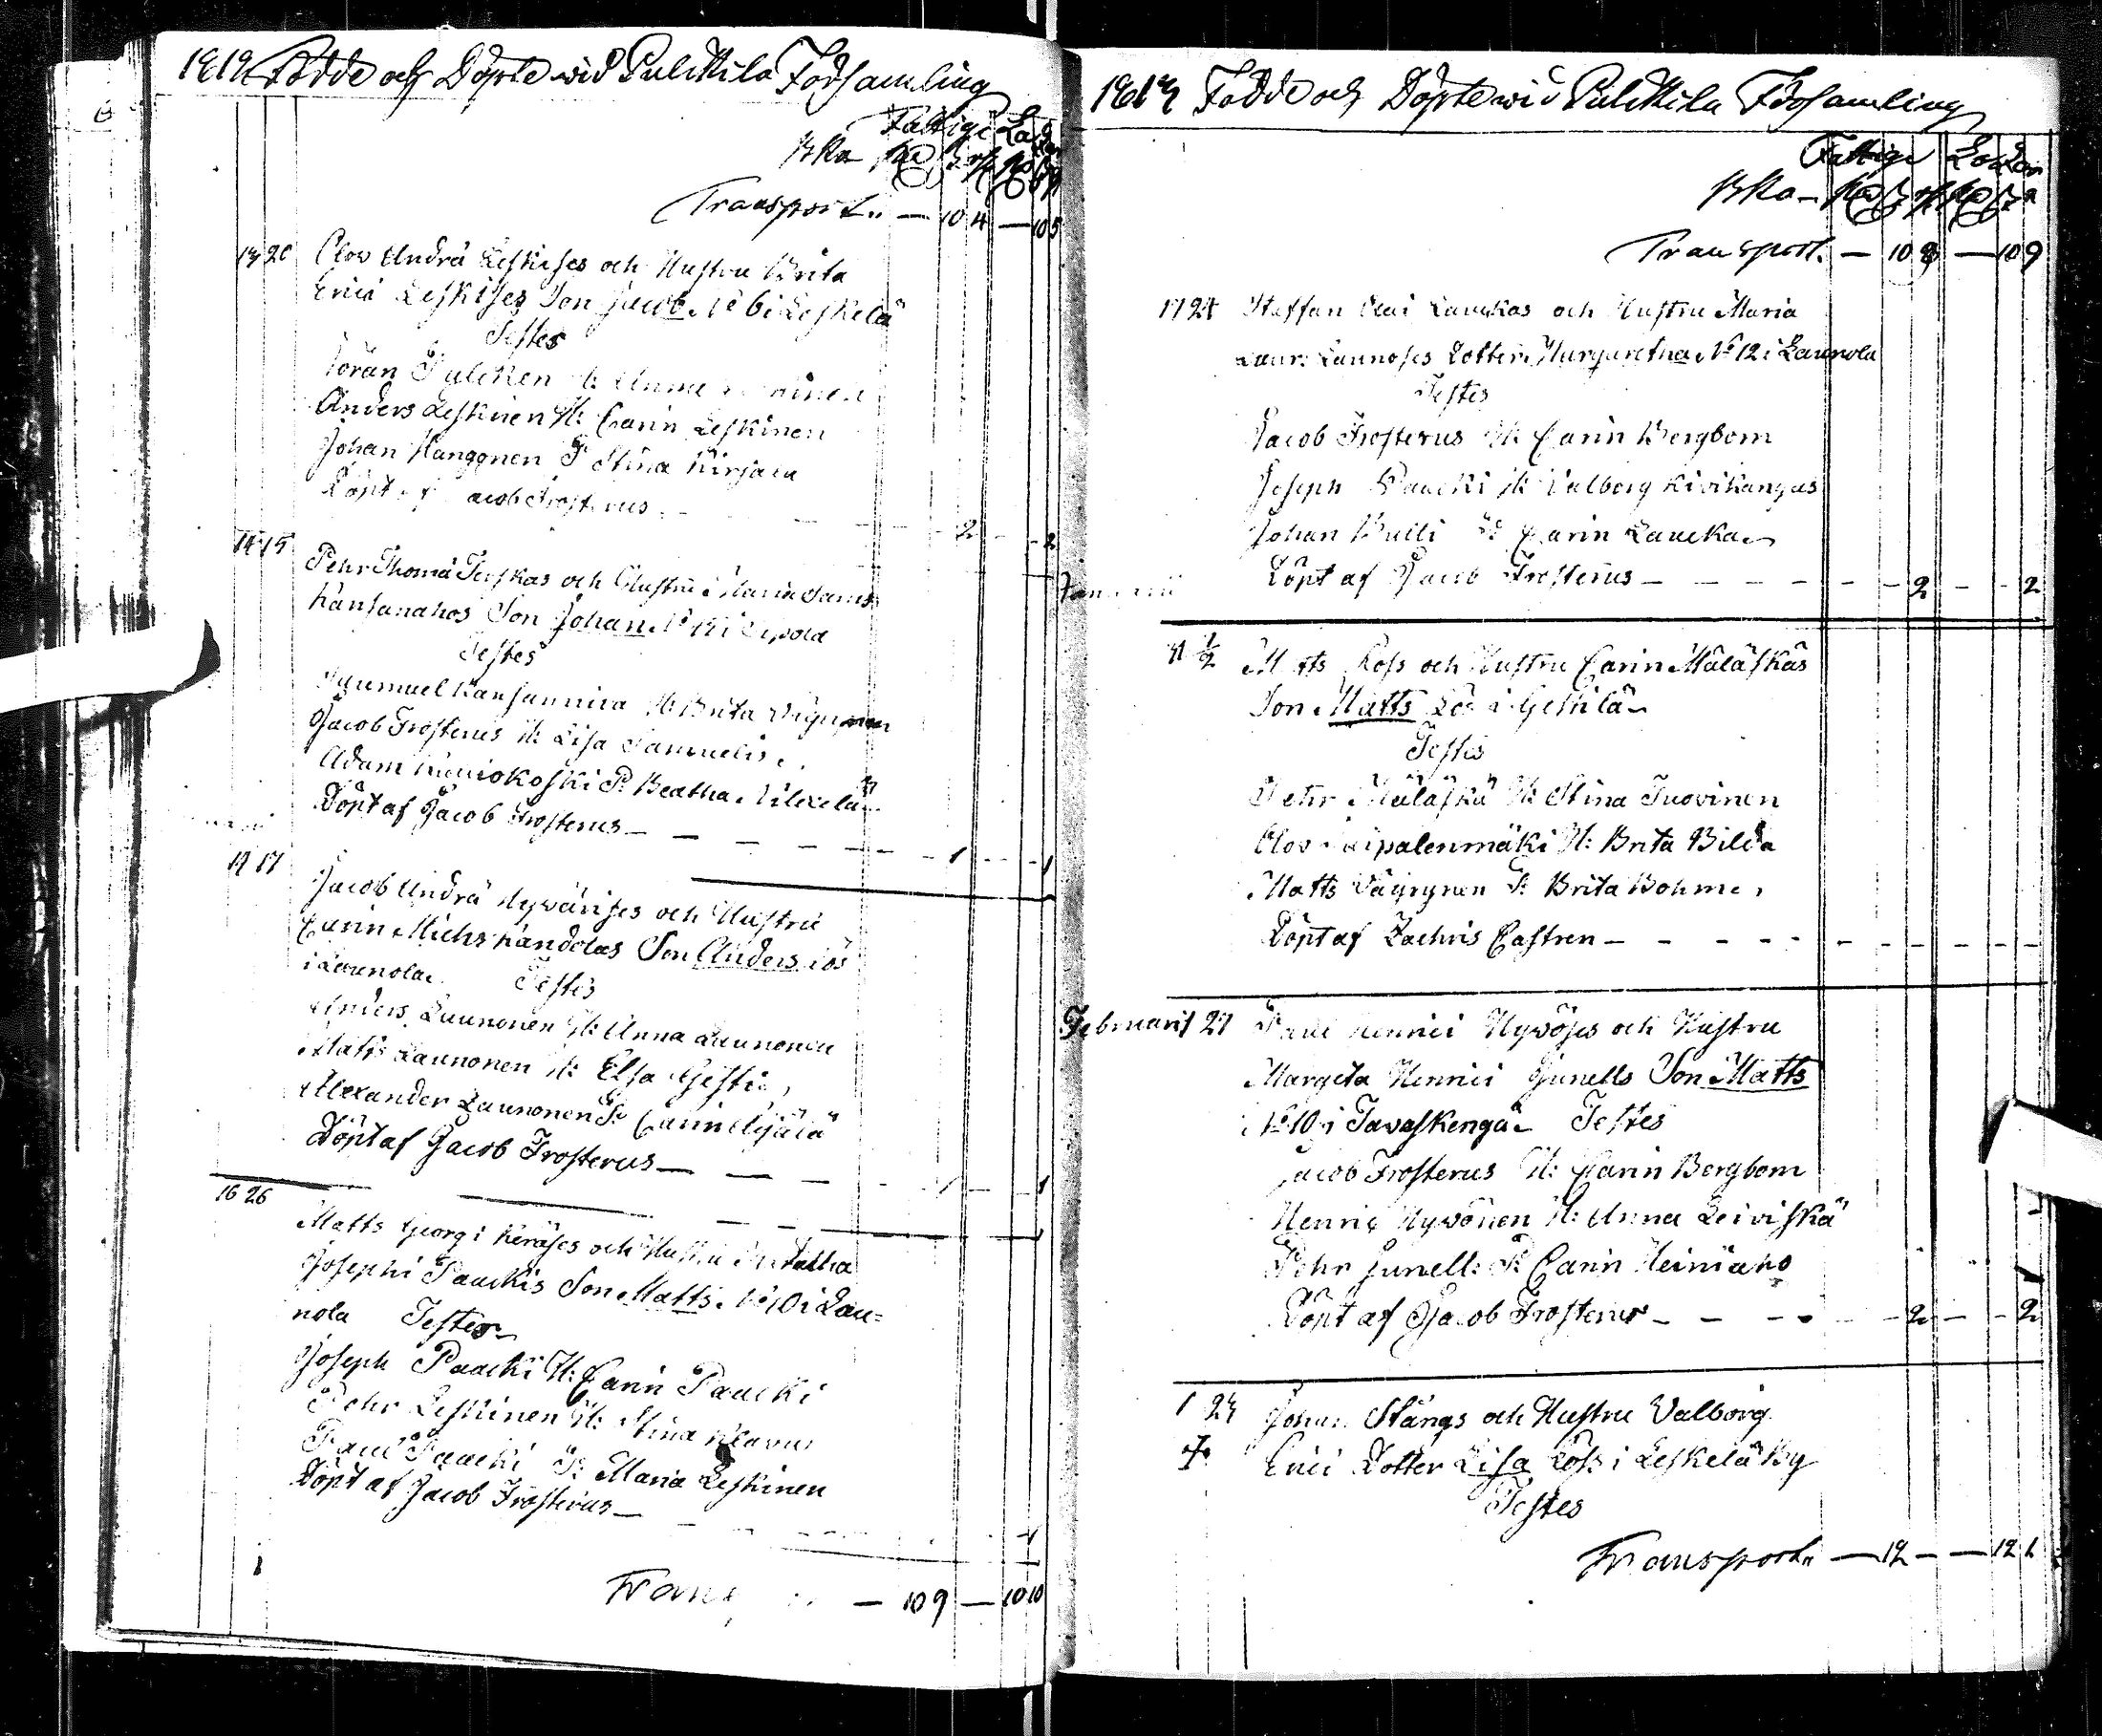 1819 Födde och Döpte wid Pulckila Församling
Fattige Låd
B Ko
Transport. — 10 4 — 10 5
19 20 Olov Andrä Leskises och Hustru Brita
Erici Leskises Son Jacob No 6 i Leskelä
Testes
Jöran Pylcken H: Anna
Anders Leskinen H: Carin Leskinen
Johan Kangonen P: Stina Kirjava
Döpt af Jacob Frosterus — 2 — 2
14 15 Pehr Thomä Tuskas och Hustru Maria
Kansanahos Son Johan No
Testes
Kansanniva H: Brita
Jacob Frosterus H: Lisa
Adam koski P: Beatha
Döpt af Jacob Frosterus — 1 — 1
19 17 Jacob Andrä Hywärises och Hustru
Carin Michs Kandolas Son Anders Lös
i Launola Testes
Anders Launonen H: Anna Launonen
Matts Launonen H: Elsa
Alexander Launonen P: Carin Alijälä
Döpt af Jacob Frosterus — 1 — 1
16 26 Matts Georgi Keräses och Hustru
Josephi Paackis Son Matts No 10 i Lau=
nola Testes
Joseph Paacki H: Carin Paacki
Pehr Leskinen H: Stina
Paul Paacki P: Maria Leskinen
Döpt af Jacob Frosterus — 1
Trans — 10 9 — 10 10
1819 Födde och Döpte wid Pulckila Församling
Fattige Lådan
B Ko
Transport. — 10 8 — 10 9
17 24 Staffan Olai Lauckas och Hustru Maria
Laur: Launoses Dotter Margaretha No 12 i Launola
Testes
Jacob Frosterus H: Carin Bergbom
Joseph Paacki H: Valborg Kivikangas
Johan Bulli P: Carin Laucka
Döpt af Jacob Frosterus — 2 — 2
Januarii
Matts Koss och Hustru Carin Mäläskäs
Son Matts Lös i
Testes
Pehr Mäläskä H: Stina Juovinen
Olov palenmäki H: Brita Bilda
Matts Väyrynen P: Brita Bohm
Döpt af Zachris Castren —
Februarii 27 Paul Henrici Hywöses och Hustru
Margeta Henrici Junells Son Matts
No 10 i Tavaskenga Testes
Jacob Frosterus H: Carin Bergbom
Henric Hywönen H: Anna Leiviskä
Pehr Junell P: Carin Heiniaho
Döpt af Jacob Frosterus — 2 — 2
1 24 Johan Stångs och Hustru Valborg
Erici Dotter Lisa Lös i Leskelä By
Testes
Transport. — 12 — — 12 1